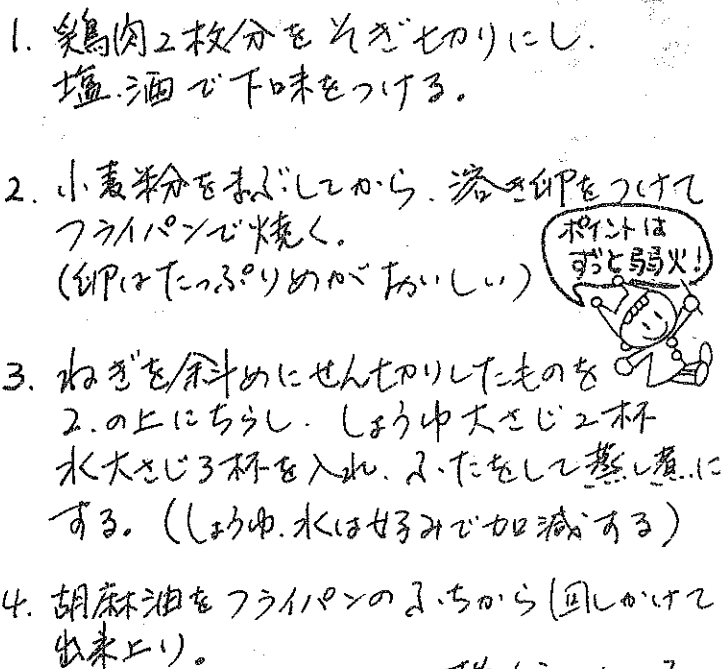 1. 鶏肉2枚分をそぎ切りにし.
塩.酒で下味をつける。
2. 小麦粉をまぶしてから、溶き卵をつけて
フライパンで焼く。
(卵はたっぷりめがおいしい)
ポイントは
ずっと弱火!
3. ねぎを斜めにせん切りしたものを
2.の上にちらし. しょうゆ大さじ2杯
水大さじ3杯を入れ、ふたをして蒸し煮に
する。(しょうゆ.水は好みで加減する)
4. 胡麻油をフライパンのふちから1回しかけて
出来上り。